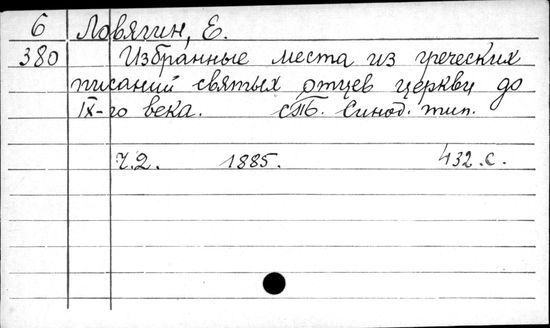 6 Ловягин, Е.
380 Избранные места из греческих
писаний святых отцев церкви до
IX-го века. СПб. Синод. тип.
Ч.2. 1885. 432.с.